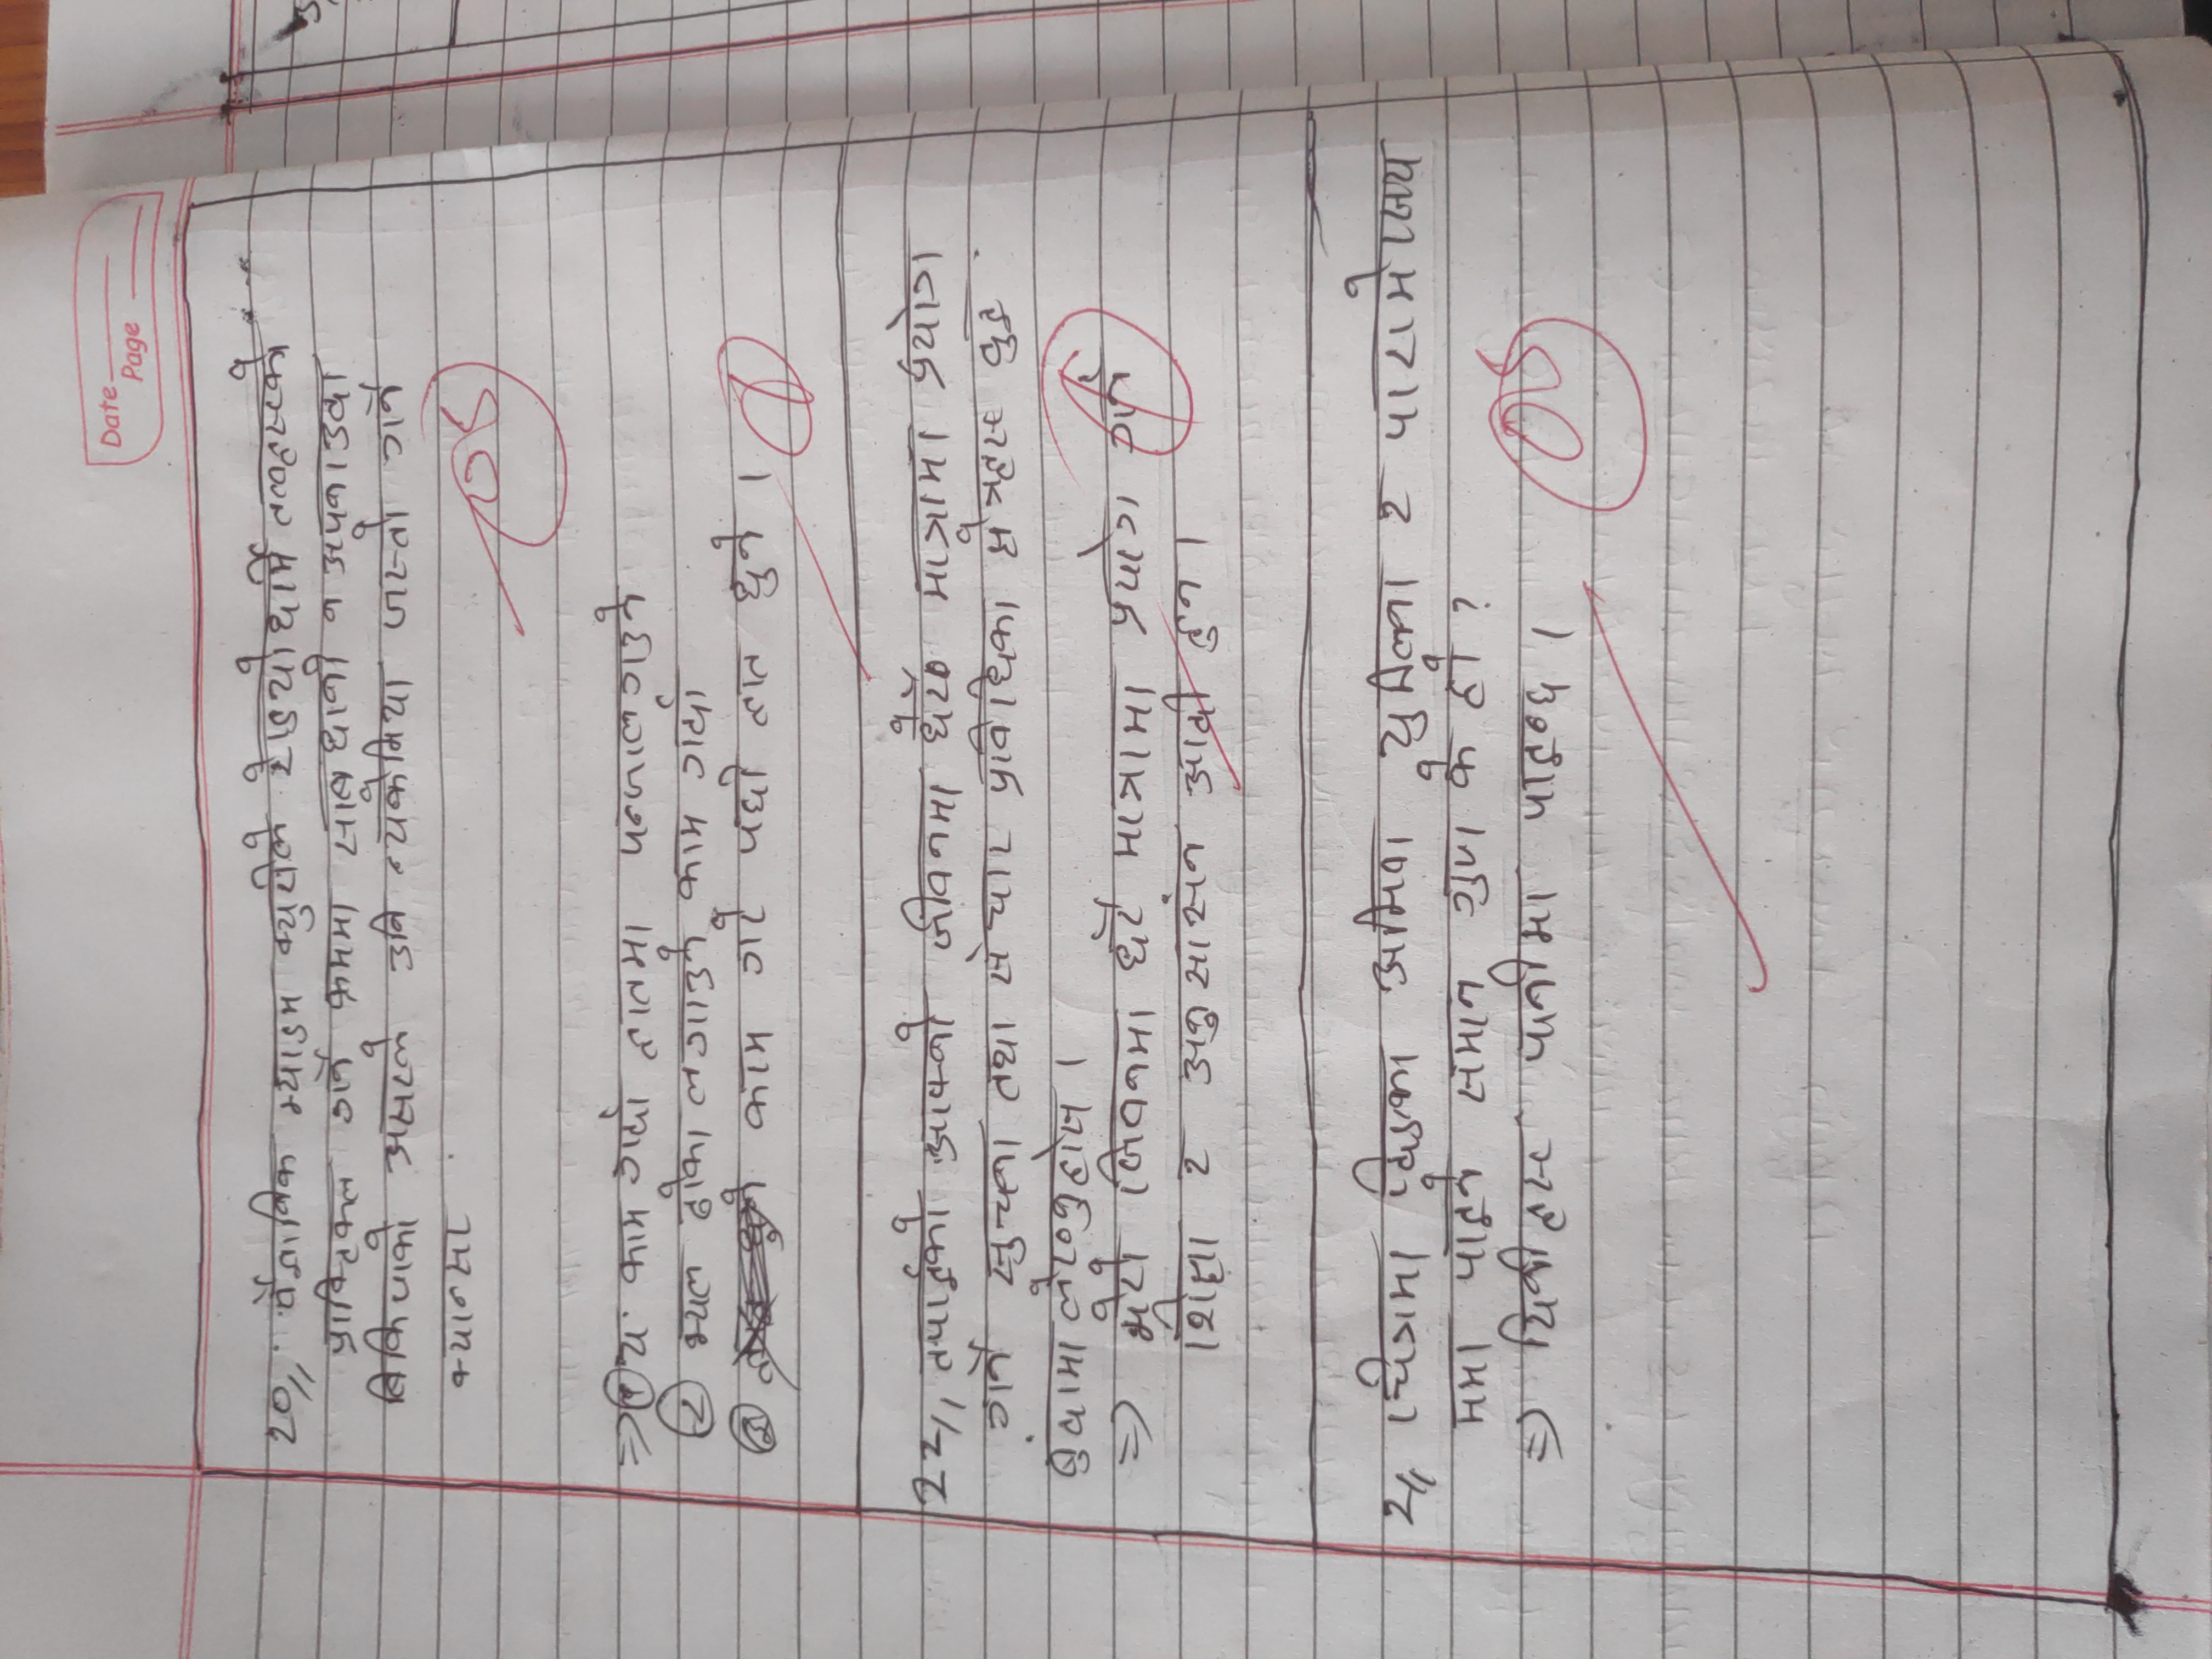 Date
Page
20,, वैज्ञानिक म्याडम क्युरीले रेडियोधार्मि तत्वहरुको
प्राक्टिकल गर्ने क्रममा साबधानी न अपनाउदा
बिकिणको असरले उनि ल्यकेमिया जस्तो गर्ने
क्यान्सर
05
=> ① य काम गर्दा हातमा पन्जालगउने
② भ्यल ढोका लगाउने काम गर्दा
③ काम गरे पछी हात धुने ।
1
22,, तपाईको आफ्नो जीवनमा धेरै मात्रामा प्रयोग
गर्ने सुचना तथा संचार प्रविधिका क्षेत्रहरु वुइ
बुंदामा लेख्नुहोस ।
=> मेरो जिवनमा धेरै मात्रामा प्रयोग गर्ने
शिक्षा र अनुसासन आदी हुन ।
1
2,, चित्रमा दिइका अमिवा युग्लिना र पारामेसिय
ममा पाइने समान गुण के हो ?
=> यिनीहरु पानीमा पाइन्छ ।
05